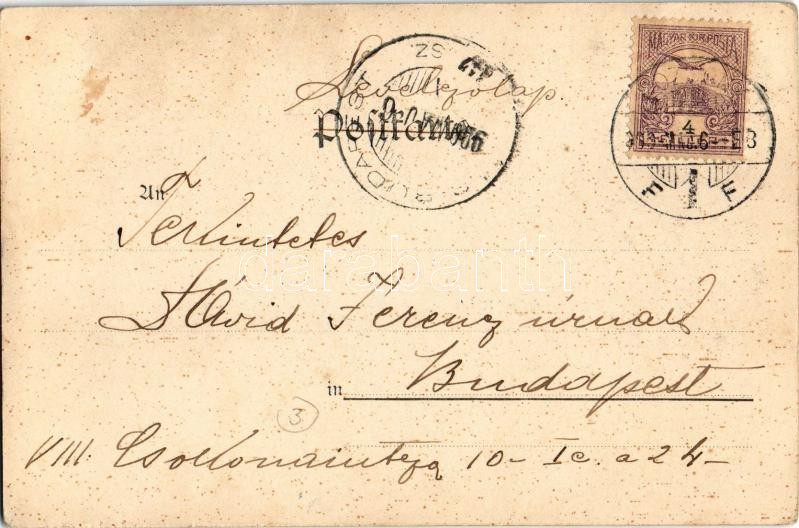 MAGYAR KIR. POSTA
Levelezőlap
Postkarte
BUDAPEST
SZ.
F F
An
Tekintetes
Dávid Ferenz úrnak
in Budapest
3.
VIII. Csokonai utza 10 – I e. a 24 –
darabanth